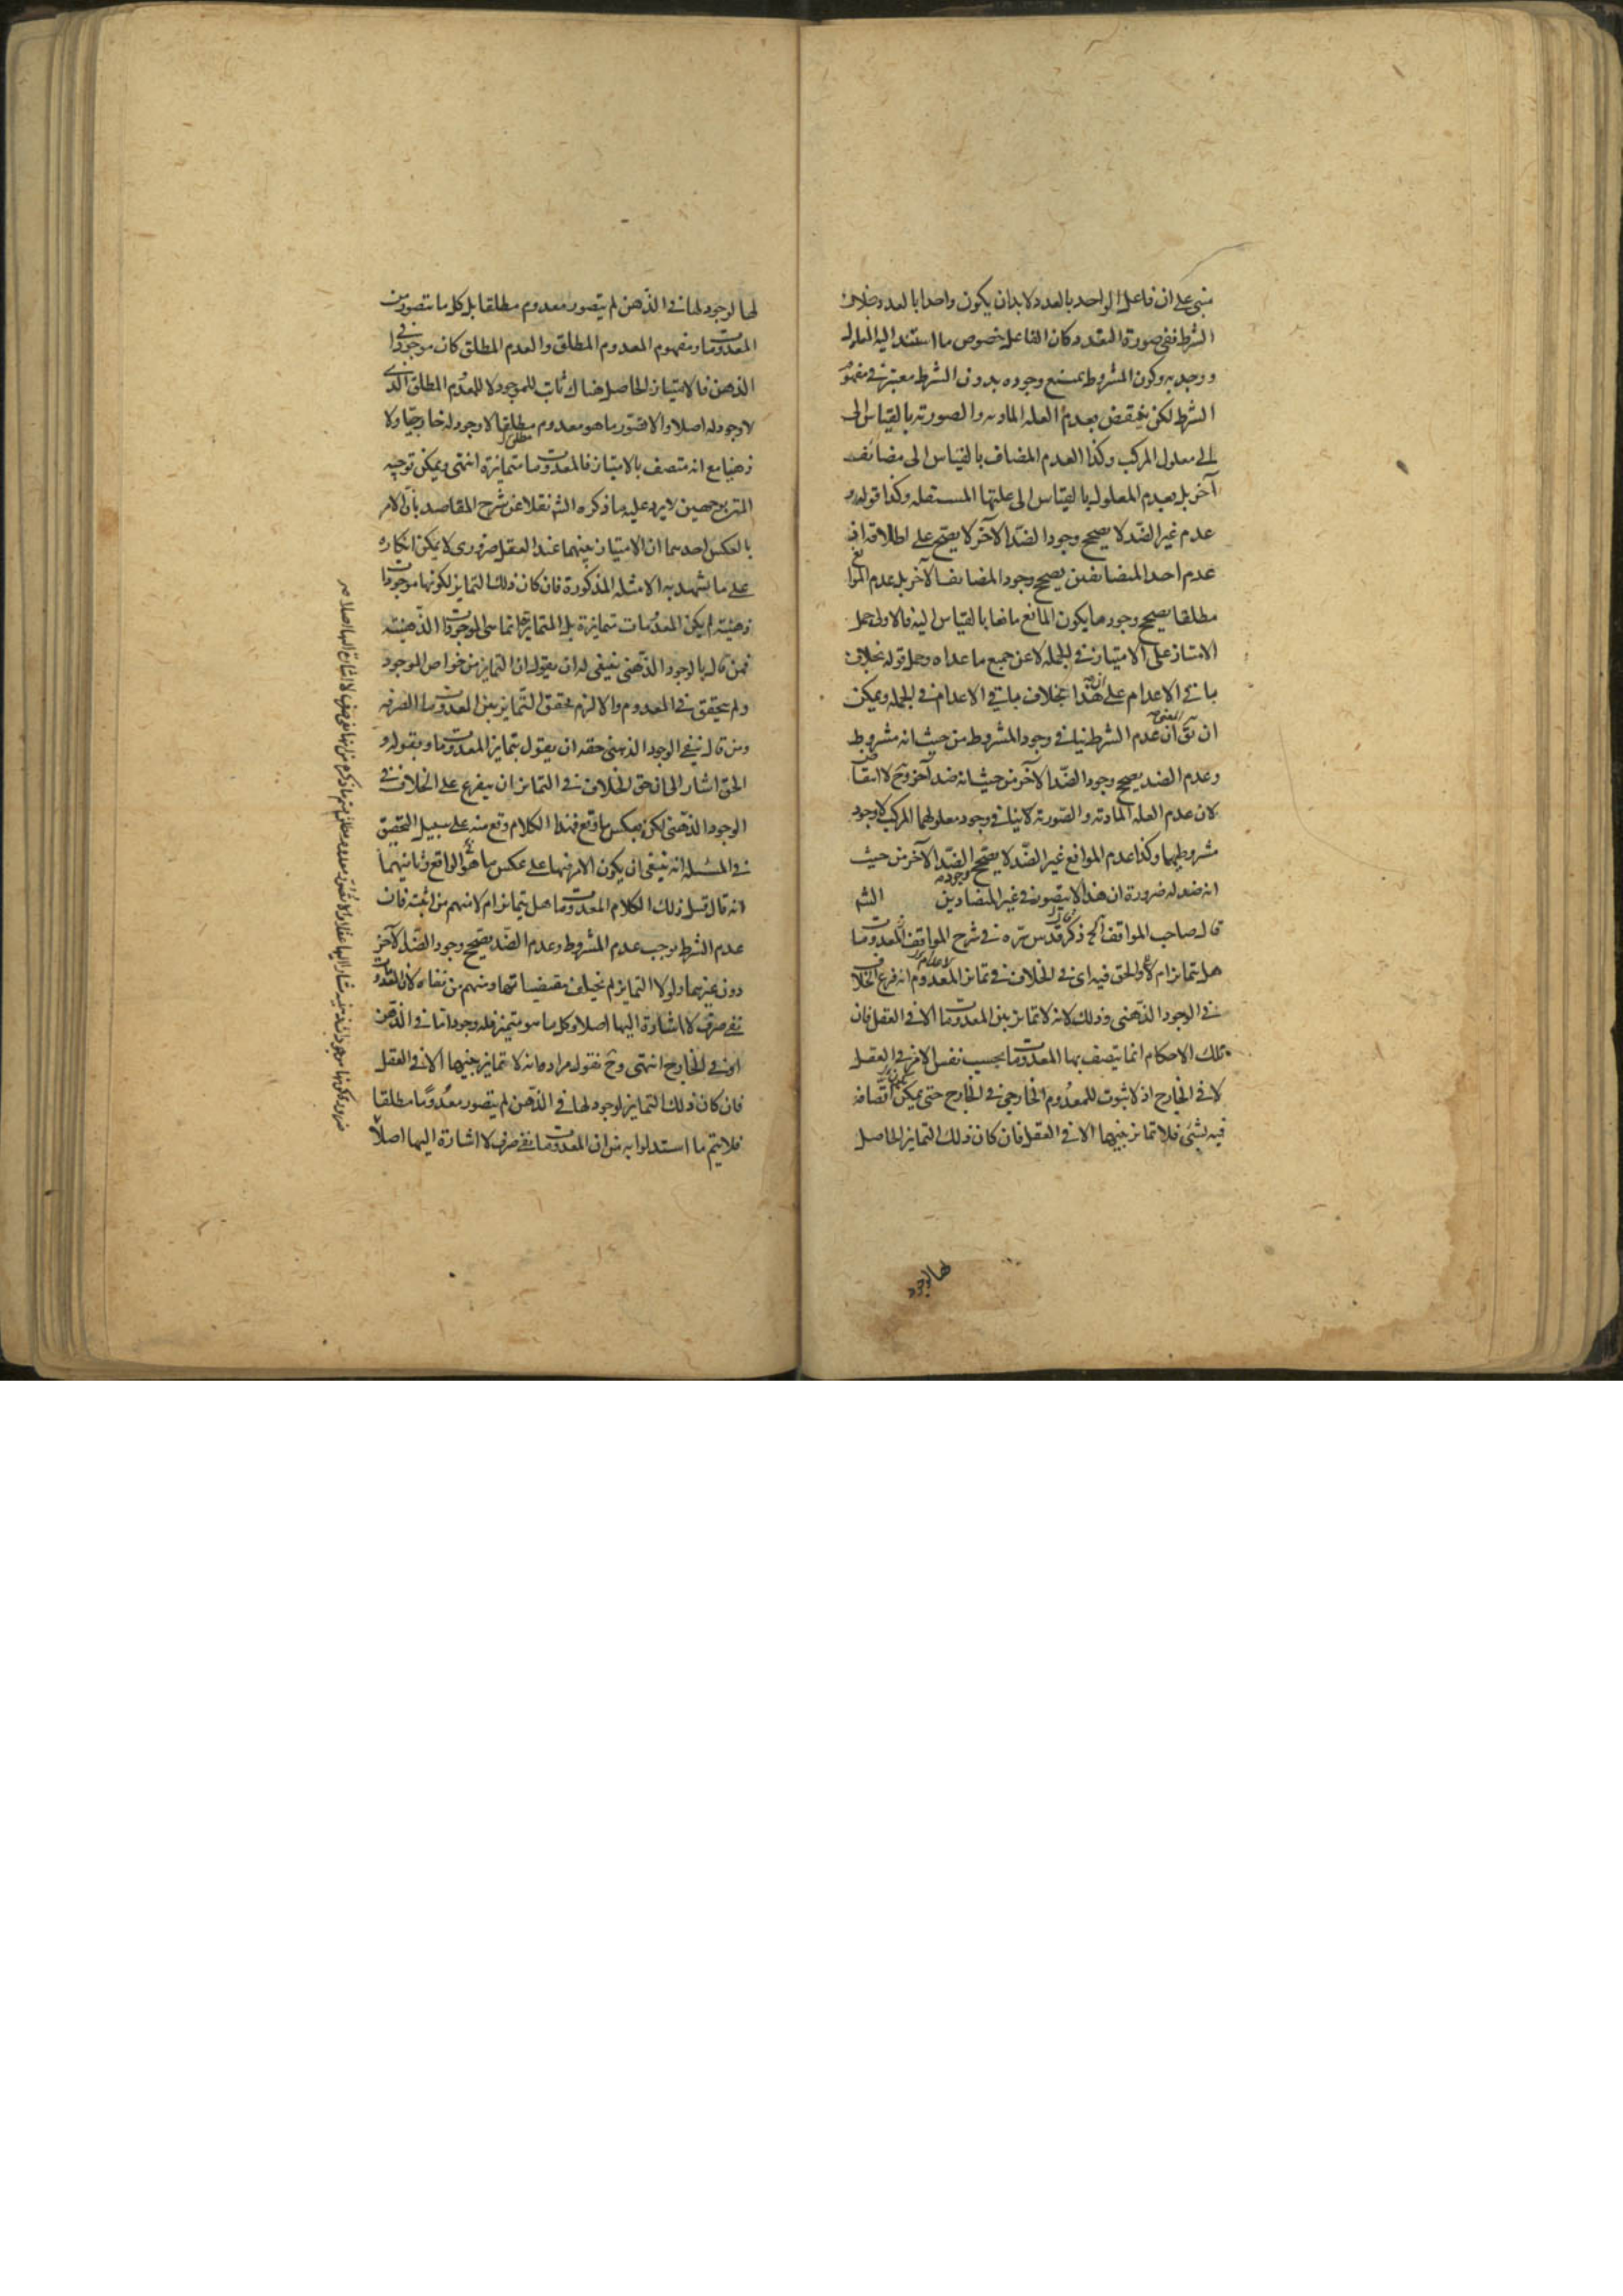 مبنى على ان فاعل الواحد بالعدد لا بد ان يكون واحدا بالعدد وبخلاف
الشرط ففى صورة التعدد كان الفاعل خصوص ما استند اليه المعلول
ووجد به وكون المشروط يمتنع وجوده بدون الشرط معتبر فى مفهوم
الشرط لكن ينتقض بعدم العله الماديه والصوريه بالقياس الى
الى معلول المركب وكذا العدم المضاف بالقياس الى مضائف
آخر بل بعدم المعلول بالقياس الى علتها المستقله وكذا قوله و
عدم غير الضد لا يصحح وجود الضد الآخر لا يصح على اطلاقه اذ
عدم احد المتضائفين يصحح وجود المضائف الآخر بل عدم الموانع
مطلقا يصحح وجود ما يكون المانع مانعا بالقياس اليه فالاولى حمل
الامتياز على الامتياز فى الجمله لا عن جميع ما عداه وحمل قوله بخلاف
باقى الاعدام على هذا بخلاف باقى الاعدام فى الجمله ويمكن
ان يق ان عدم الشرط ينافى وجود المشروط من حيث انه مشروط
وعدم الضد يصحح وجود الضد الآخر من حيث انه ضد آخر وح لا انتقاض
لان عدم العله الماديه والصوريه لا ينافى وجود معلولهما المركب لا وجود
مشروطيهما وكذا عدم الموانع غير الضد لا يصحح وجود الضد الآخر من حيث
انه ضد له ضرورة ان هذا لا يتصور فى غير المتضادين الشم
قال صاحب المواقف الخ ذكر قدس سره فى شرح المواقف ان المعدومات
هل يتمايز ام لا والحق فيه اى فى الخلاف فى تمايز المعدوم انه فرع الخلاف
فى الوجود الذهنى وذلك لانه لا تمايز بين المعدومات الا فى العقل فان
تلك الاحكام انما يتصف بها المعدومات بحسب نفس الامر فى العقل
لا فى الخارج اذ لا ثبوت للمعدوم الخارجى فى الخارج حتى يمكن اتصافه
فيه بشئ فلا تمايز بينهما الا فى العقل فان كان ذلك التمايز الحاصل
لها لوجود
لها لوجود لها فى الذهن لم يتصور معدوم مطلقا بل كل ما يتصور من
المعدومات ومفهوم المعدوم المطلق والعدم المطلق كان موجودا فى
الذهن فالامتياز الحاصل هناك ثابت للموجود لا للمعدوم المطلق الذى
لا وجود له اصلا والا فتصور ما هو معدوم مطلقا لا وجود له خارجيا ولا
ذهنيا مع انه متصف بالامتياز فالمعدومات متمايزة انتهى ويمكن توجيه
بوجهين لا يرد عليه ما ذكره الشم نقلا عن شرح المقاصد بان الامر
بالعكس احدهما ان الامتياز بينهما عند العقل ضرورى لا يمكن انكاره
على ما يشهد به الامثله المذكورة فان كان ذلك التمايز لكونها موجودات
ذهنيه لم يكن المعدومات متمايزة بل المتمايز انما هى الموجودات الذهنيه
فمن قال بالوجود الذهنى ينبغى له ان يقول ان التمايز من خواص الموجود
ولم يتحقق فى المعدوم والا لزم تحقق التمايز بين المعدومات الصرفه
ومن قال بنفى الوجود الذهنى حقه ان يقول بتمايز المعدومات وبقوله و
الحق اشار الى ان حق الخلاف فى التمايز ان يتفرع على الخلاف فى
الوجود الذهنى لكن بعكس ما وقع فهذا الكلام وقع منه على سبيل التحقيق
فى المسئله انه ينبغى ان يكون الامر فيها على عكس ما هو الواقع وثانيهما
انه قال قبل ذلك الكلام المعدومات هل يتمايز ام لا منهم من اثبته فان
عدم الشرط يوجب عدم المشروط وعدم الضد يصحح وجود الضد الآخر
دون غيرهما ولولا التمايز لم يختلف مقتضياتها ومنهم من نفاه لان المعدومات
نفى صرف لا اشارة اليها اصلا وكل ما هو متميز فله وجود اما فى الذهن
او فى الخارج انتهى وح نقول مراده انه لا تمايز بينهما الا فى العقل
فان كان ذلك التمايز لوجود لها فى الذهن لم يتصور معدوما مطلقا
فلا يتم ما استدلوا به من ان المعدومات نفى صرف لا اشارة اليها اصلا